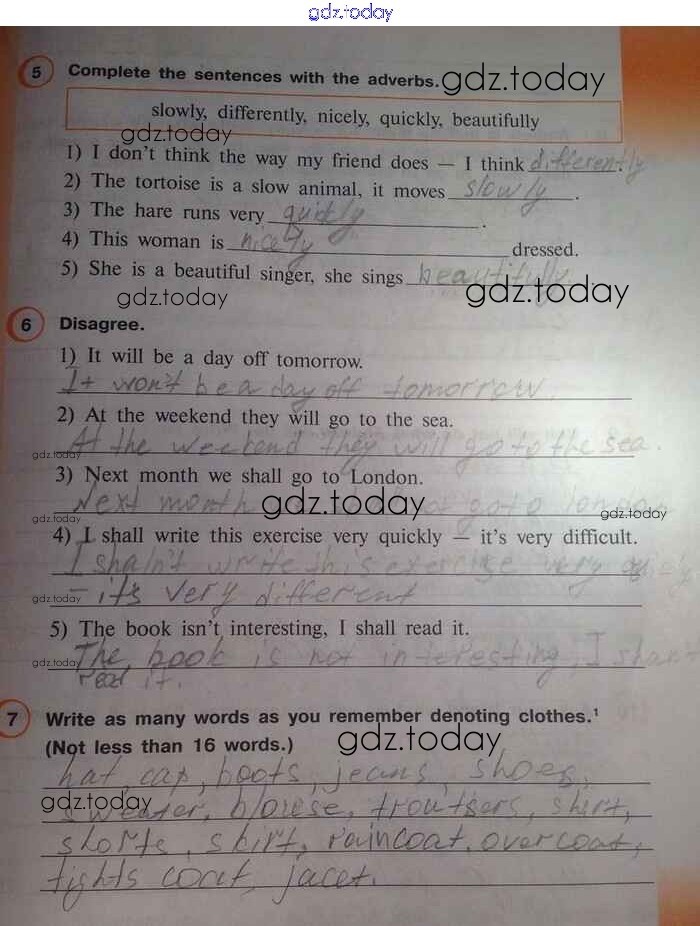 gdz.today
5 Complete the sentences with the adverbs. gdz.today
slowly, differently, nicely, quickly, beautifully
gdz.today
1) I don't think the way my friend does — I think differently.
2) The tortoise is a slow animal, it moves slowly.
3) The hare runs very quickly.
4) This woman is nicely dressed.
5) She is a beautiful singer, she sings beautifully
gdz.today gdz.today
6 Disagree.
1) It will be a day off tomorrow.
It won't be a day off tomorrow.
2) At the weekend they will go to the sea.
At the weekend they will go to the sea.
gdz.today
3) Next month we shall go to London.
Next month gdz.today go to london
gdz.today gdz.today
4) I shall write this exercise very quickly — it's very difficult.
I shaln't write this exercise very quickly
gdz.today – it's very different
5) The book isn't interesting, I shall read it.
gdz.today The book is not interesting, I shan't
read it.
7 Write as many words as you remember denoting clothes.¹
(Not less than 16 words.) gdz.today
hat, cap, boots, jeans, shoes,
gdz.today
sweater, blouse, troutsers, shirt,
shorts, skirt, raincoat, overcoat,
tights, jacet.